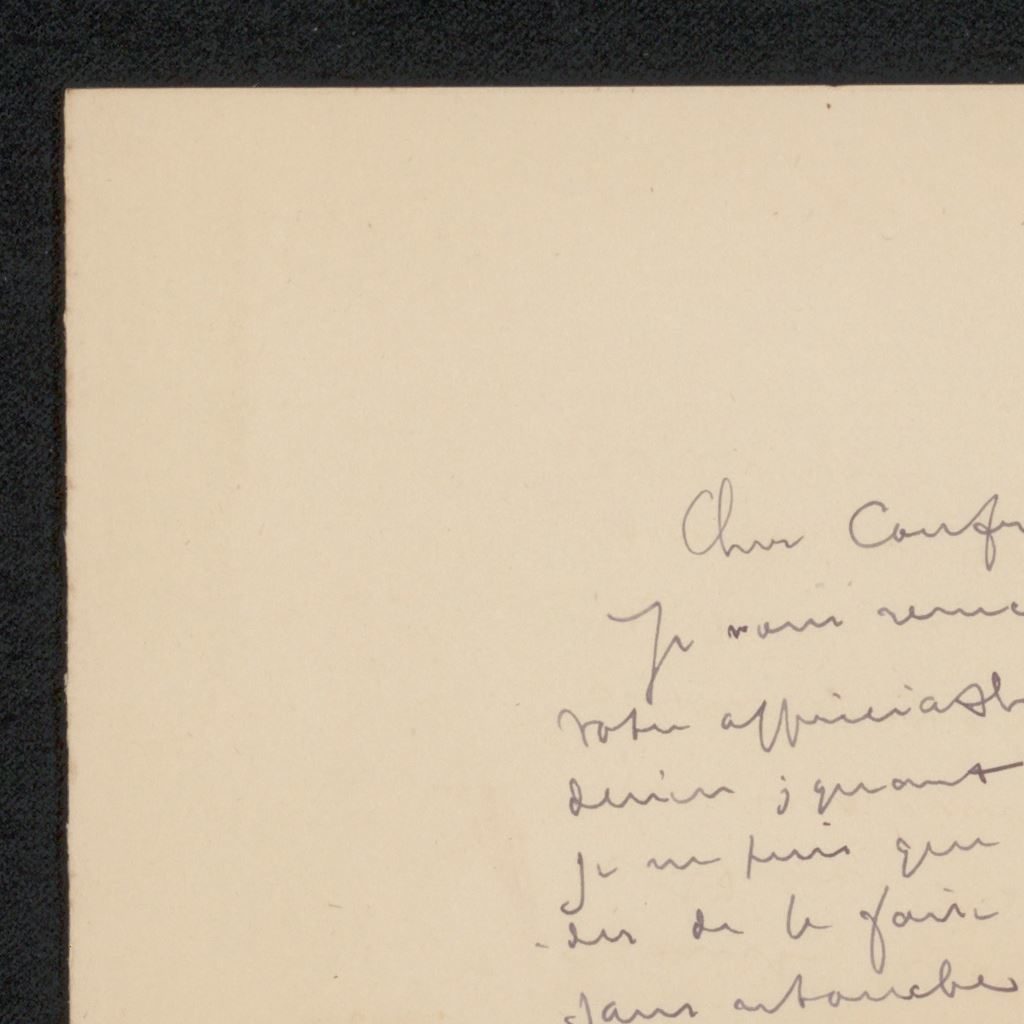 Cher Confr
Je vous remer
votre appréciable
dernier ; quant
je ne puis que
der de le faire
sans retoucher